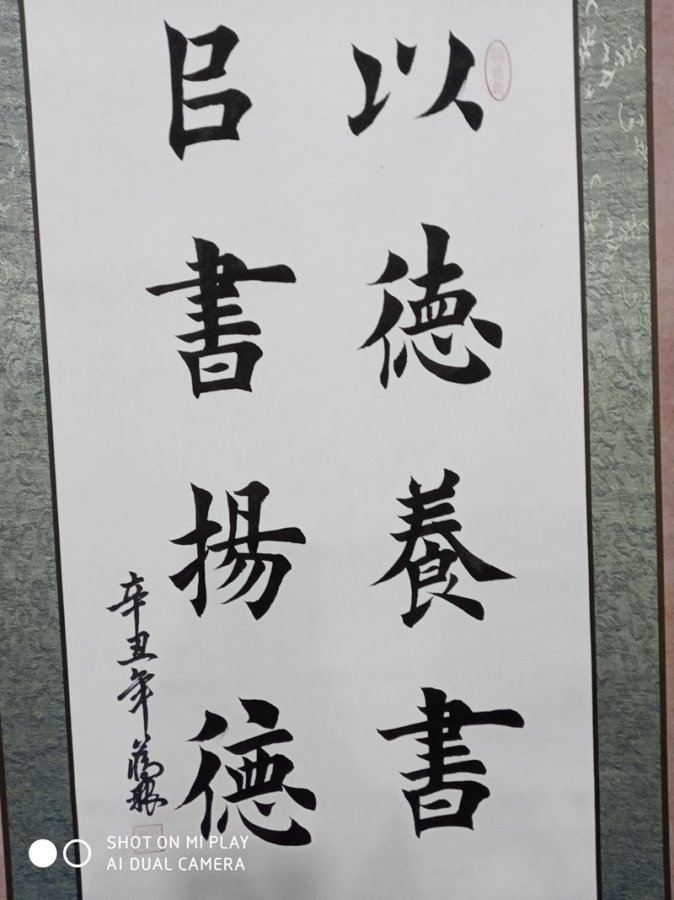 以德養書
㠯書揚德
辛丑年
SHOT ON MI PLAY
AI DUAL CAMERA